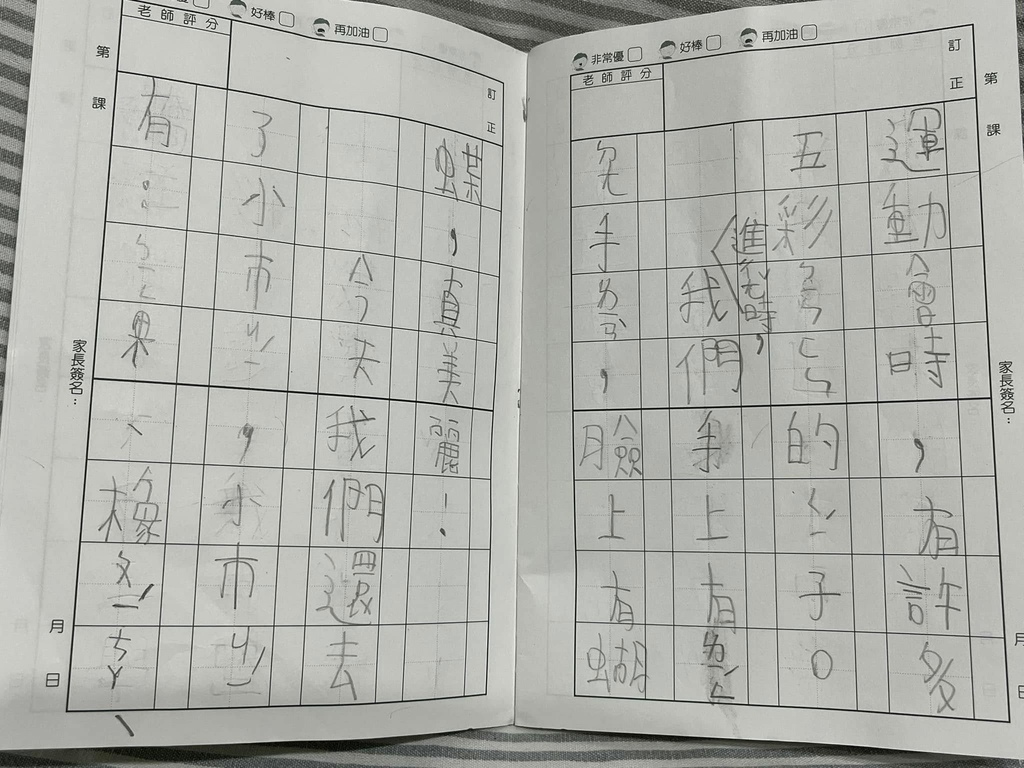 非常優 好棒 再加油
第 課
訂正
老師評分
運動會時，有許多
五彩 的ㄑㄧˊ子。
進 時，
我們手上有
手 ，臉上有蝴
家長簽名：
月 日
優 好棒 再加油
訂正
老師評分
第 課
蝶，真美麗！
今天我們還去
了小市ㄐㄧˊ，小市ㄐㄧˊ
有： 果、橡ㄆㄧˊ
家長簽名：
月 日